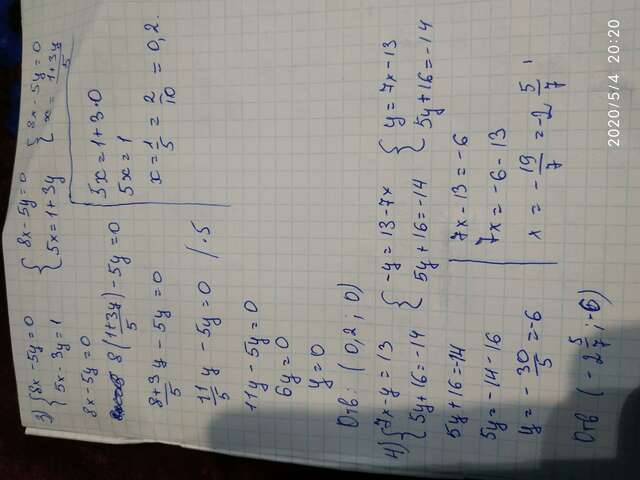 3) { 8x - 5y = 0
5x - 3y = 1
{ 8x - 5y = 0
5x = 1 + 3y
{ 8x - 5y = 0
x = (1+3y)/5
8x - 5y = 0
8 (1+3y)/5 - 5y = 0
8+3y/5 y - 5y = 0
11/5 y - 5y = 0 / · 5
11y - 5y = 0
6y = 0
y = 0
5x = 1 + 3·0
5x = 1
x = 1/5 = 2/10 = 0,2.
Отв: (0,2; 0)
4) { 7x - y = 13
5y + 16 = -14
{ -y = 13 - 7x
5y + 16 = -14
{ y = 7x - 13
5y + 16 = -14
5y + 16 = -14
5y = -14 - 16
y = - 30/5 = -6
7x - 13 = -6
7x = -6 - 13
x = - 19/7 = -2 5/7
Отв (-2 5/7; -6)
2020/5/4 20:20